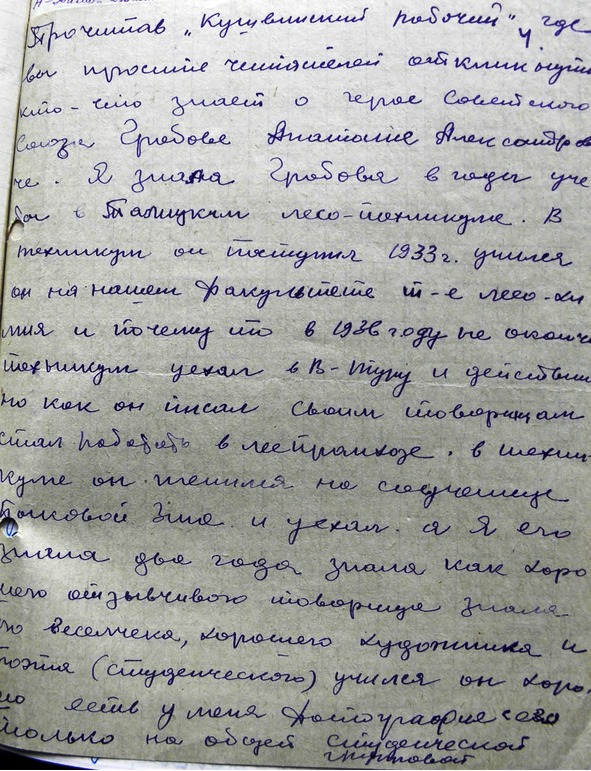 Прочитав „Кушвинский рабочий", где
вы просите читателей откликнут
кто-что знает о герое Советского
Союза Гробове Анатолие Александров
че. Я знала Гробова в годы уче
бы в Талицком лесо-техникуме. В
техникум он поступил 1933 г. учился
он на нашем факультете т-е лесо-хи
мия и почему то в 1936 году не оконч
техникум уехал в В-Туру и действи
но как он писал своим товарищам
стал работать в леспромхозе. в техни
куме он женился на соученице
Быковой Зине и уехал. а я его
знала два года знала как хоро
шего отзывчивого товарища знала
го веселчека, хорошего художника и
поэта (студенческого) учился он хоро.
шо есть у меня фотография его
только на общей студенческой
групповой